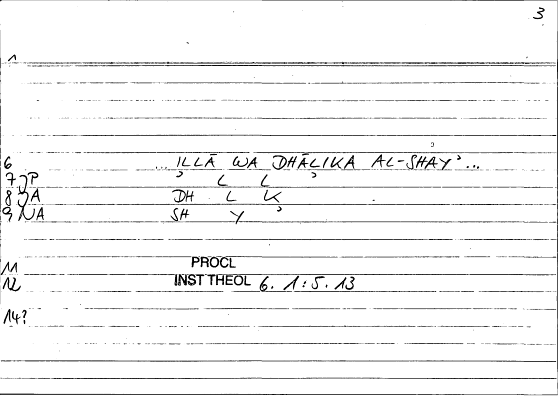 3
1
6 ... ILLĀ WA DHĀLIKA AL-SHAYʾ ...
7 JP ʾ L L ʾ
8 JA DH L K
9 NA SH Y ʾ
11 PROCL
12 INST THEOL 6. 1:5.13
14?